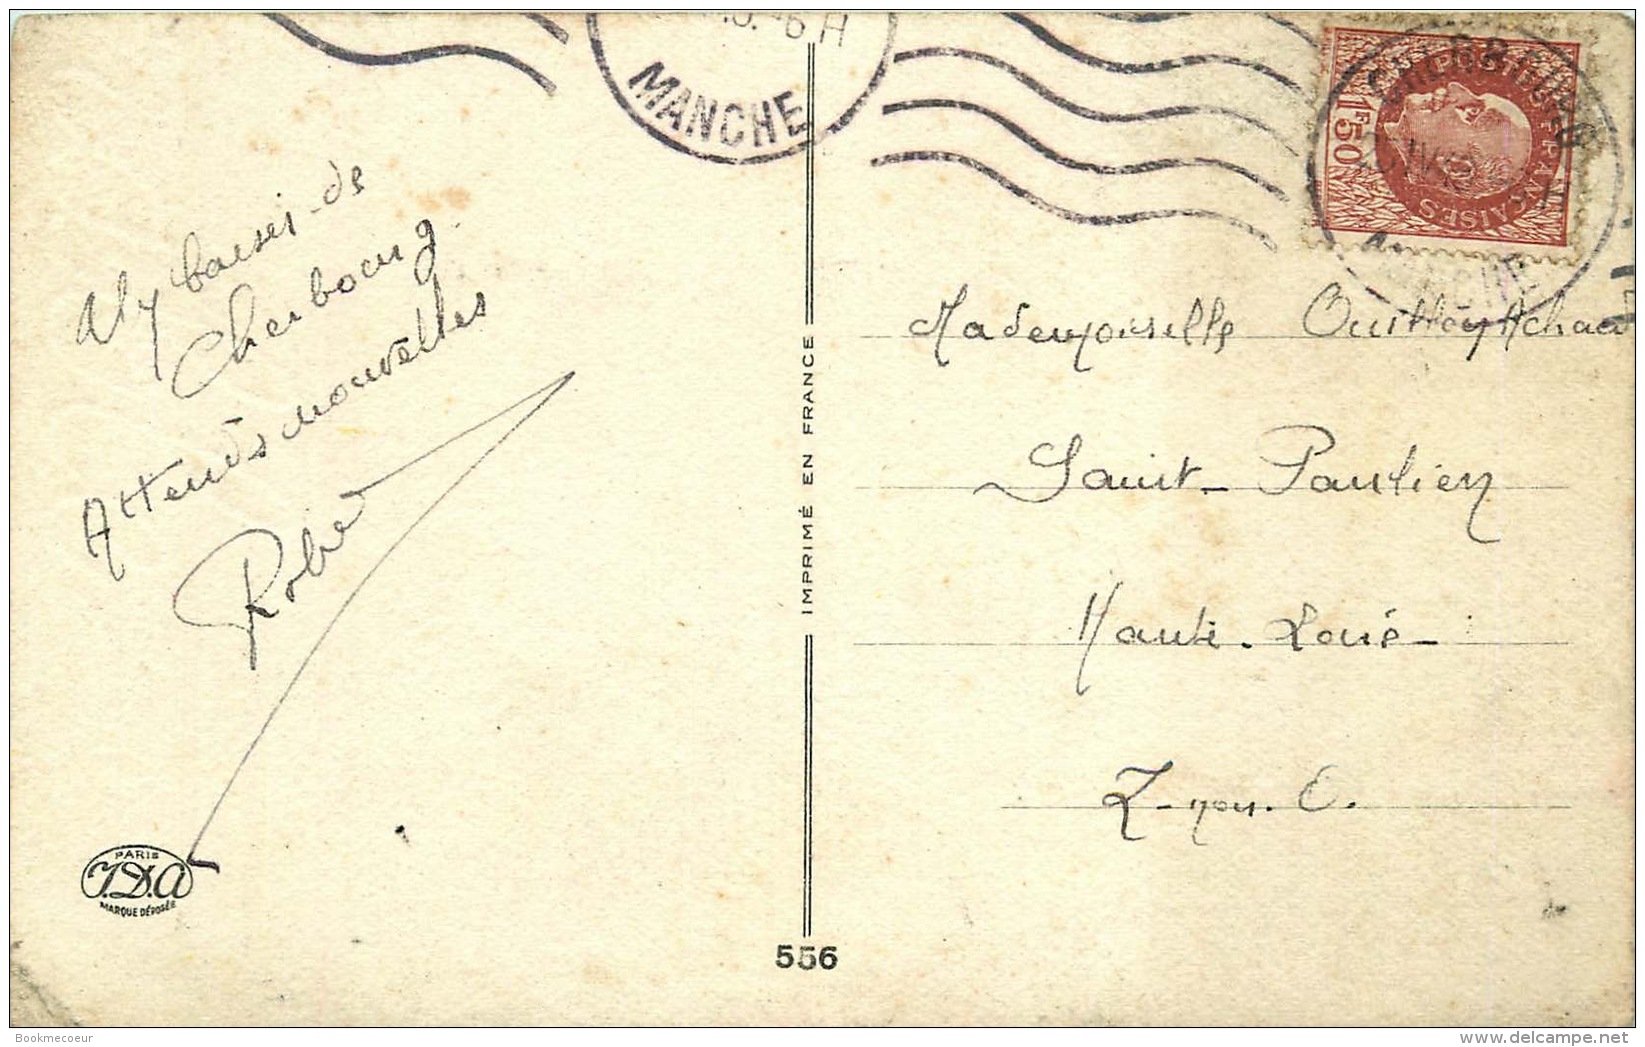 baisers de
Cherbourg
Attends nouvelles
Robert
PARIS
I.D.A
MARQUE DÉPOSÉE
IMPRIMÉ EN FRANCE
556
MANCHE
CHERBOURG
MANCHE
POSTES FRANÇAISES
1F50
Mademoiselle
Saint-Paulien
Haute-Loire
Z-non.O.
Bookmecoeur
www.delcampe.net